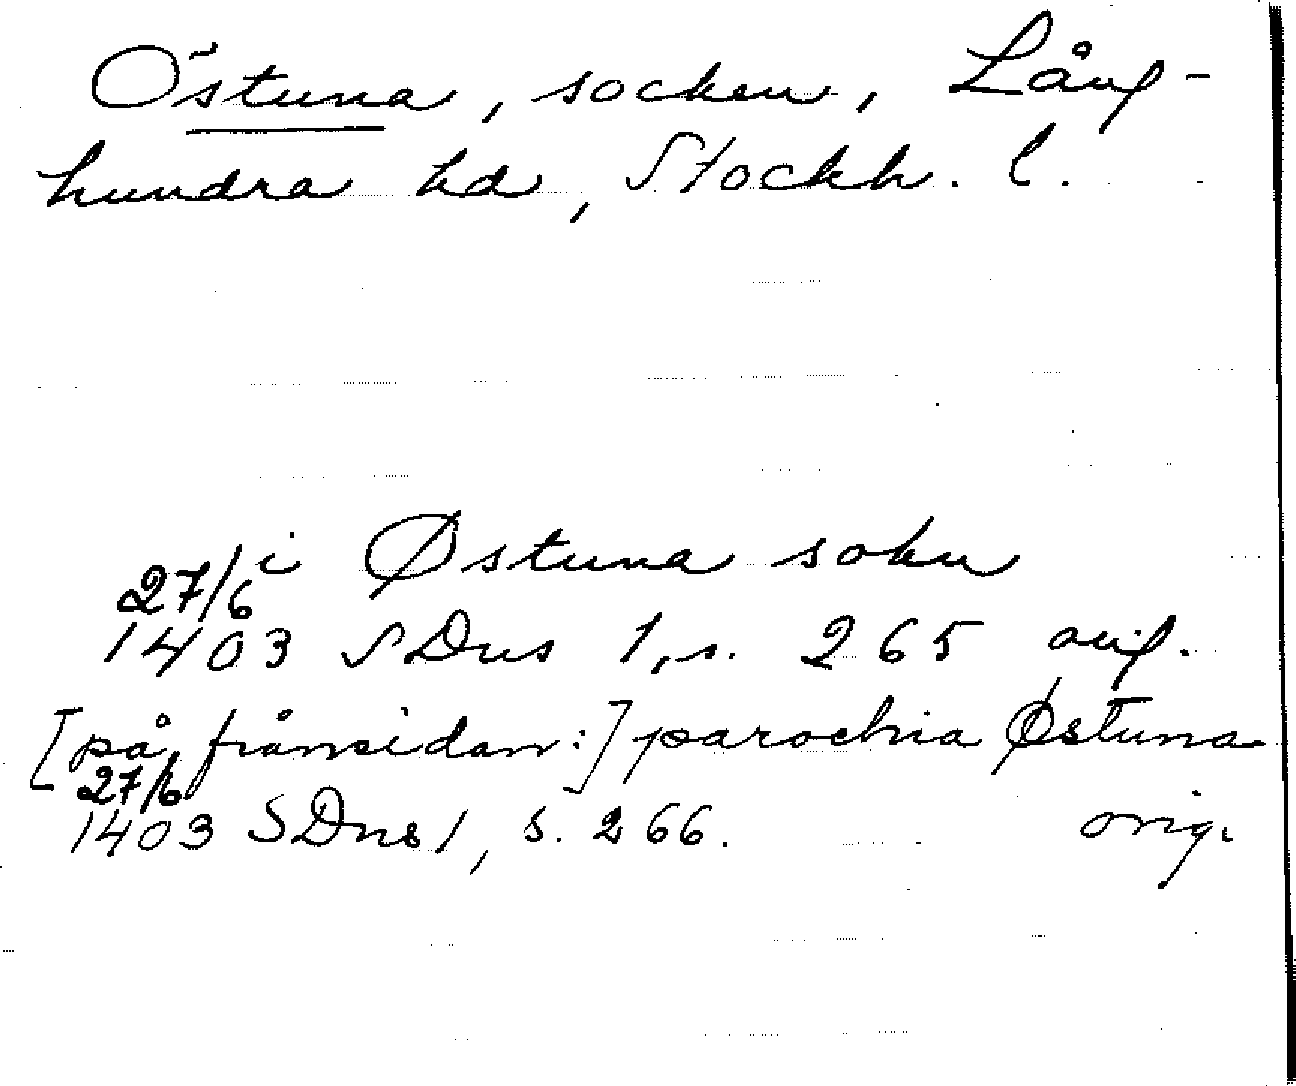 Östuna, socken, Lång-
hundra hd, Stockh. l.
i Østuna sokn
27/6
1403 SDns 1, s. 265 orig.
[på frånsidan:] parochia Østuna
27/6
1403 SDns 1, s. 266. orig.